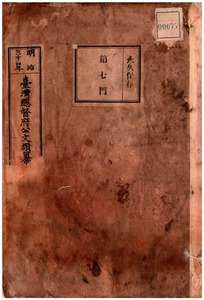 永久保存
第七門
明治三十年
臺灣總督府公文類纂
00677